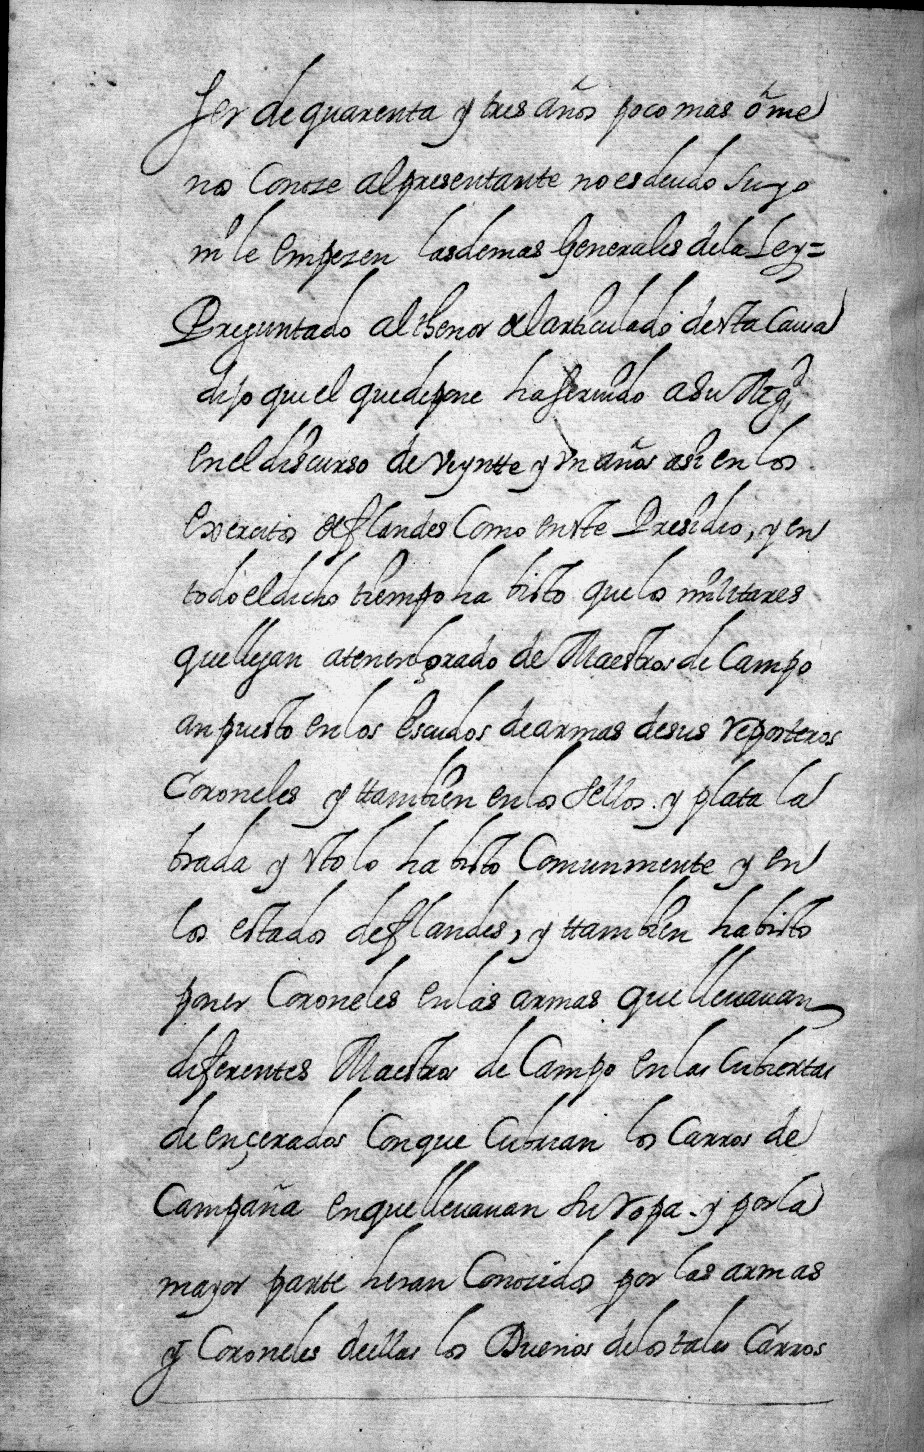 ser de quarenta y tres años poco mas o me
nos Conoze al presentante no es deudo suyo
ni le empezen las demas Generales de la Ley =
Preguntado al thenor del articulado desta Causa
dijo que el que depone ha seruido a Su Mag.d
en el discurso de veyntte y un años asi en los
exercitos de flandes Como en este Presidio, y en
todo el dicho tiempo ha bisto que los militares
que llegan a tener grado de Maestros de Campo
an puesto en los escudos de armas de sus reposteros
Coroneles y ttambien en los sellos. y plata la
brada y esto lo ha bisto Comunmente y en
los estados de flandes, y ttambien ha bisto
poner Coroneles en las armas que lleuauan
diferentes Maestros de Campo en las Cubiertas
de ençerados Con que Cubrian los Carros de
Campaña en que lleuauan su ropa. y por la
mayor parte heran Conozidos por las armas
y Coroneles de ellas los Duenos de los tales Carros